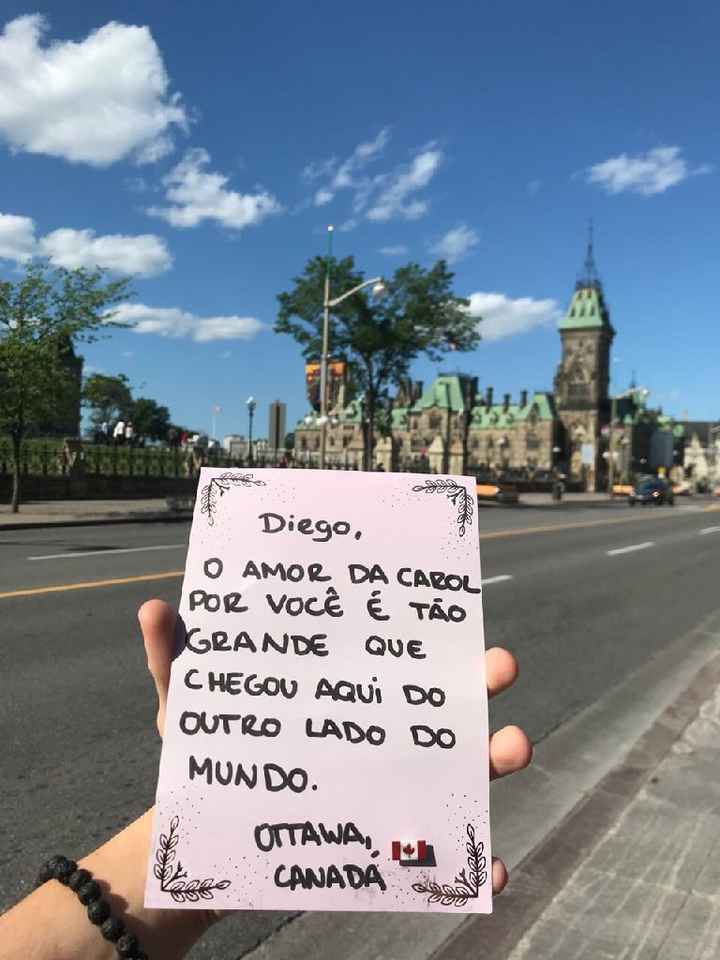 Diego,
O AMOR DA CAROL
POR VOCÊ É TÃO
GRANDE QUE
CHEGOU AQUi DO
OUTRO LADO DO
MUNDO.
OTTAWA,
CANADÁ